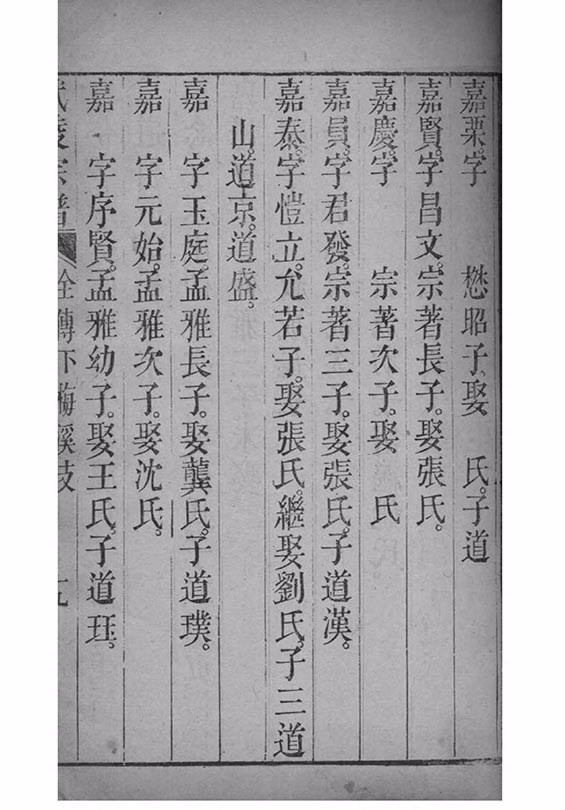 嘉栗字　　懋昭子、娶　氏。子道
嘉賢。字昌文。宗著長子。娶張氏。
嘉慶。字　　宗著次子。娶　氏
嘉員。字君發。宗著三子。娶張氏。子道漢。
嘉泰。字愷立。允若子。娶張氏。繼娶劉氏。子三道
山。道京。道盛。
嘉　字玉庭。孟雅長子。娶龔氏。子道璞。
嘉　字元始。孟雅次子。娶沈氏。
嘉　字序賢。孟雅幼子。娶王氏。子道珏。
陵宗譜　傳下梅溪支